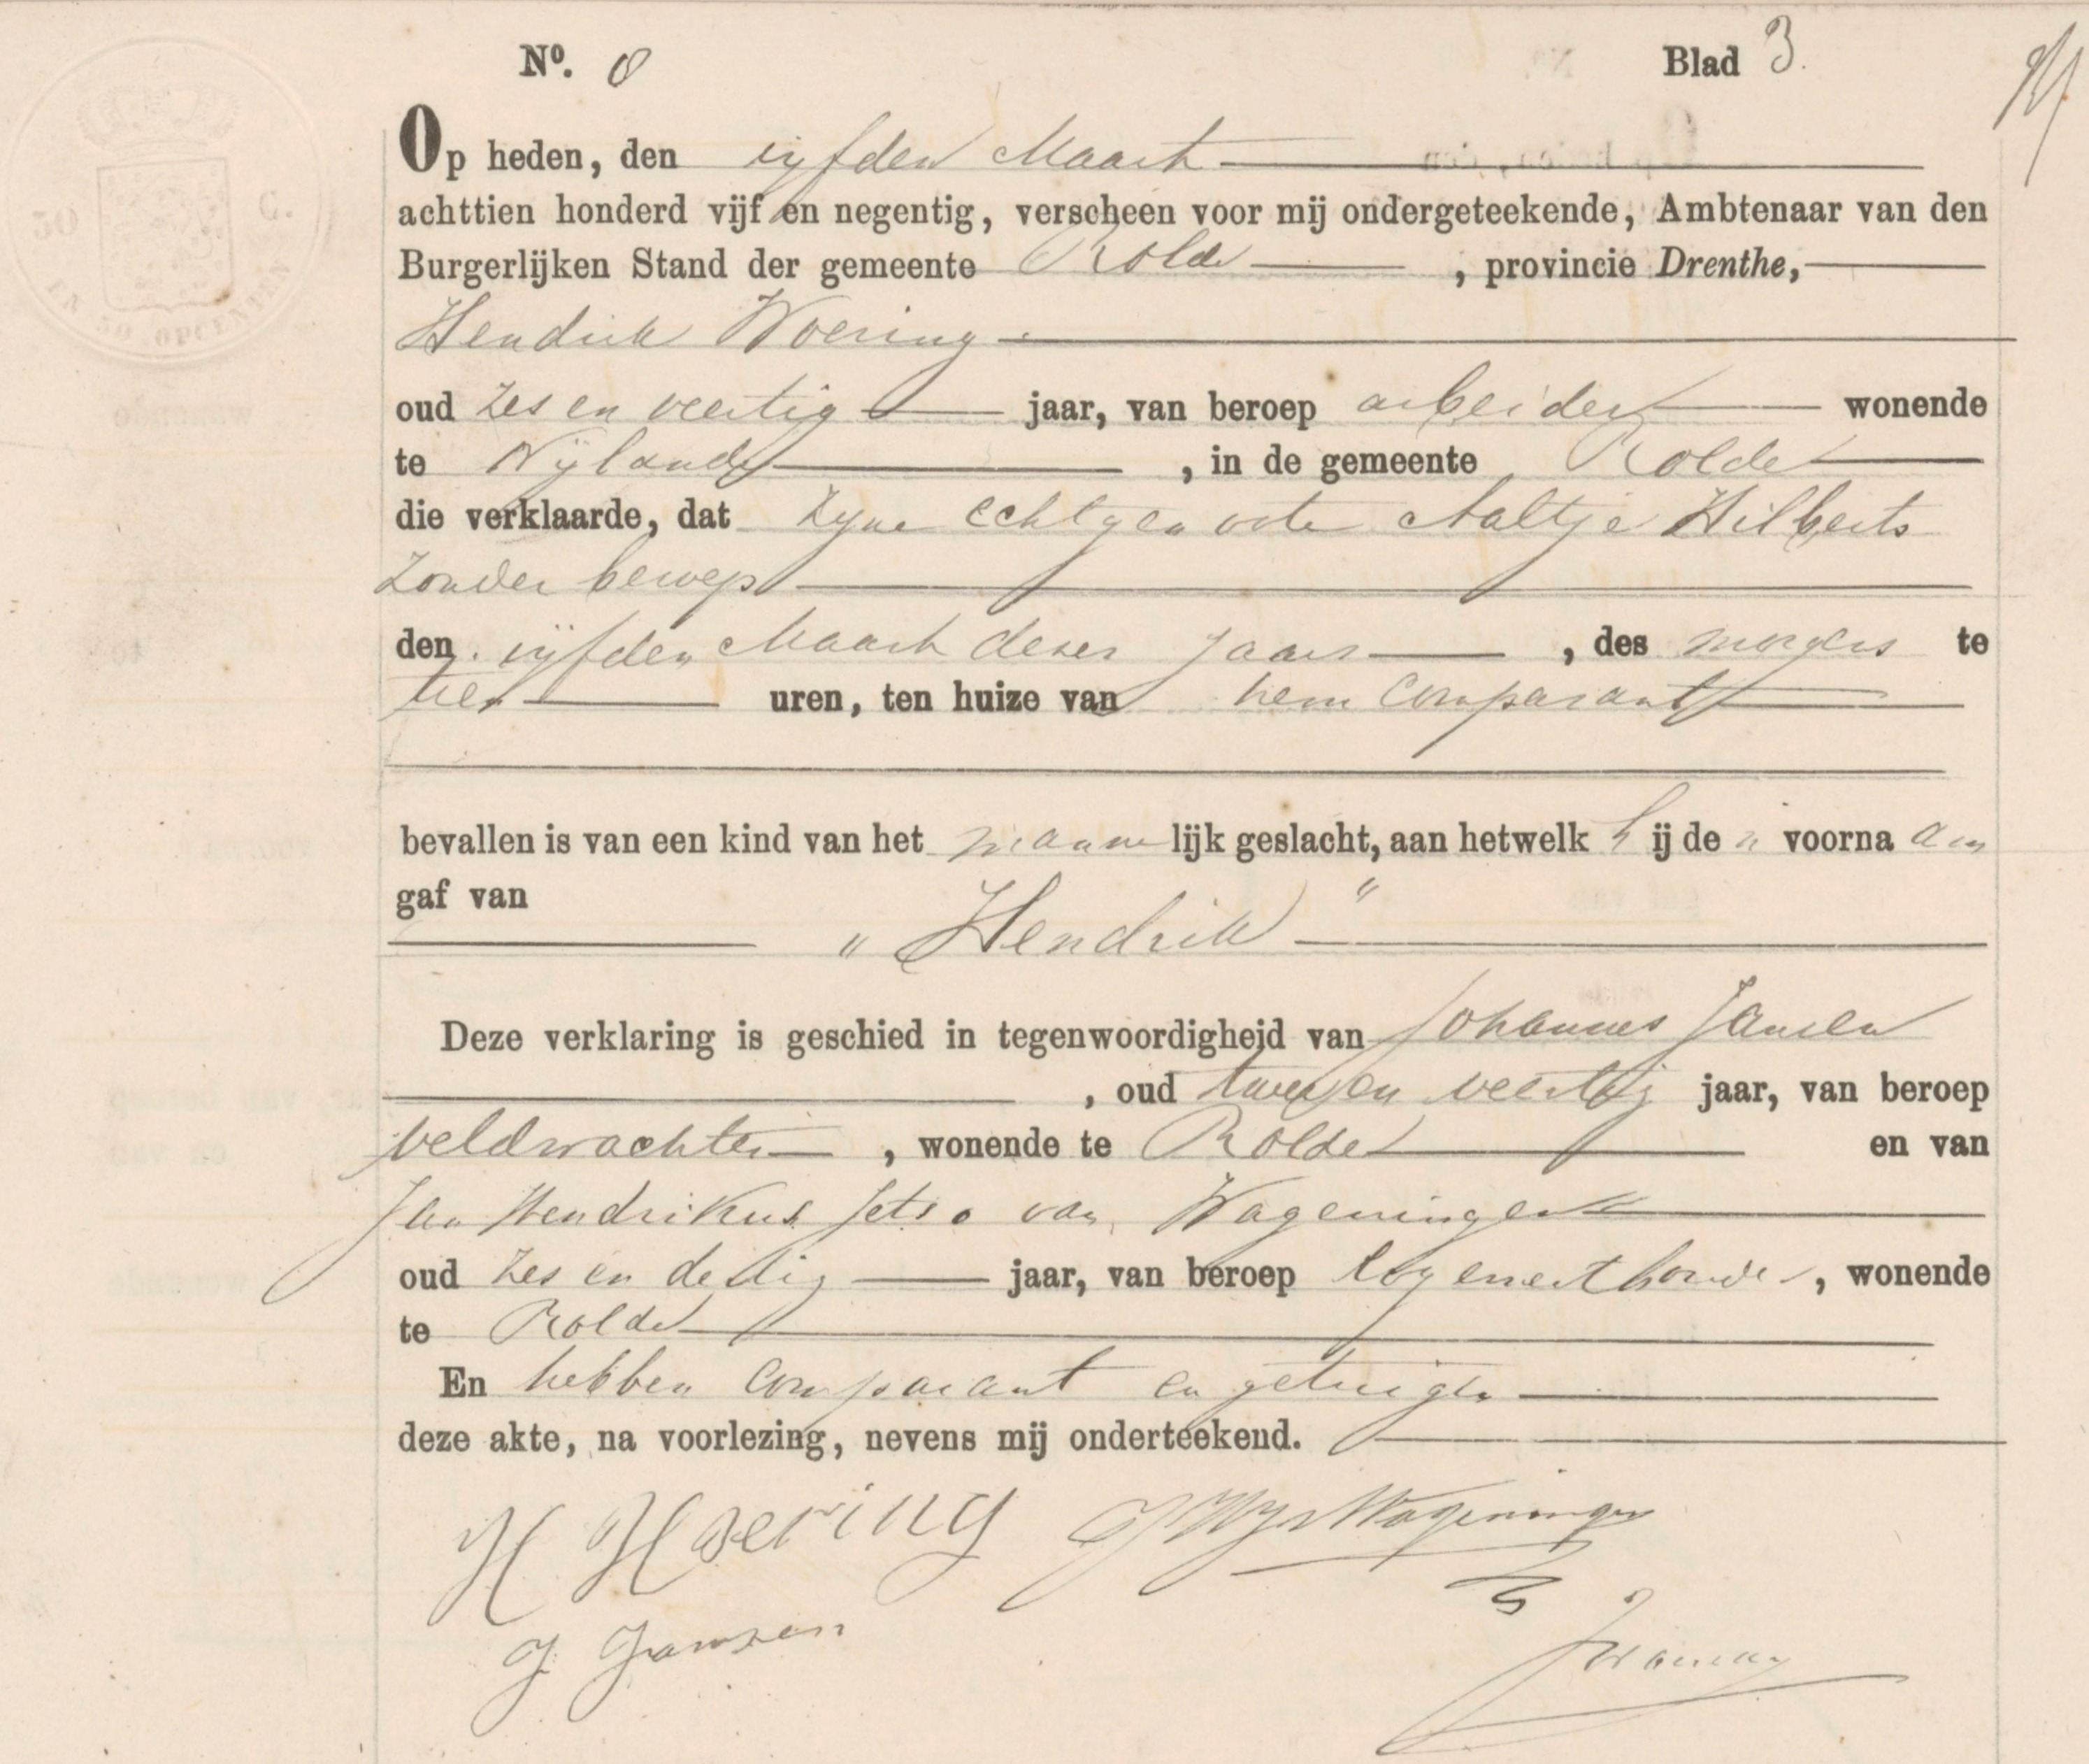 Nº. 8 Blad 3.
Op heden, den vyfden Maart
achttien honderd vijf en negentig, verscheen voor mij ondergeteekende, Ambtenaar van den
Burgerlijken Stand der gemeente Rolde, provincie Drenthe,
Hendrik Woering
oud zes en veertig jaar, van beroep arbeider wonende
te Nijlande, in de gemeente Rolde
die verklaarde, dat zyne echtgenoote Aaltje Hilberts
zonder beroep
den vijfden Maart dezes jaars, des morgens te
tien uren, ten huize van hem Comparant
bevallen is van een kind van het mannelijk geslacht, aan hetwelk hij den voornaam
gaf van
„Hendrik"
Deze verklaring is geschied in tegenwoordigheid van Johannes Jansen
, oud twee en veertig jaar, van beroep
veldwachter, wonende te Rolde en van
Jan Hendrikus Jetso van Wageningen
oud zes en dertig jaar, van beroep logementhouder, wonende
te Rolde
En hebben comparant en getuigen
deze akte, na voorlezing, nevens mij onderteekend.
H Woering JHJvWageningen
J Jansen